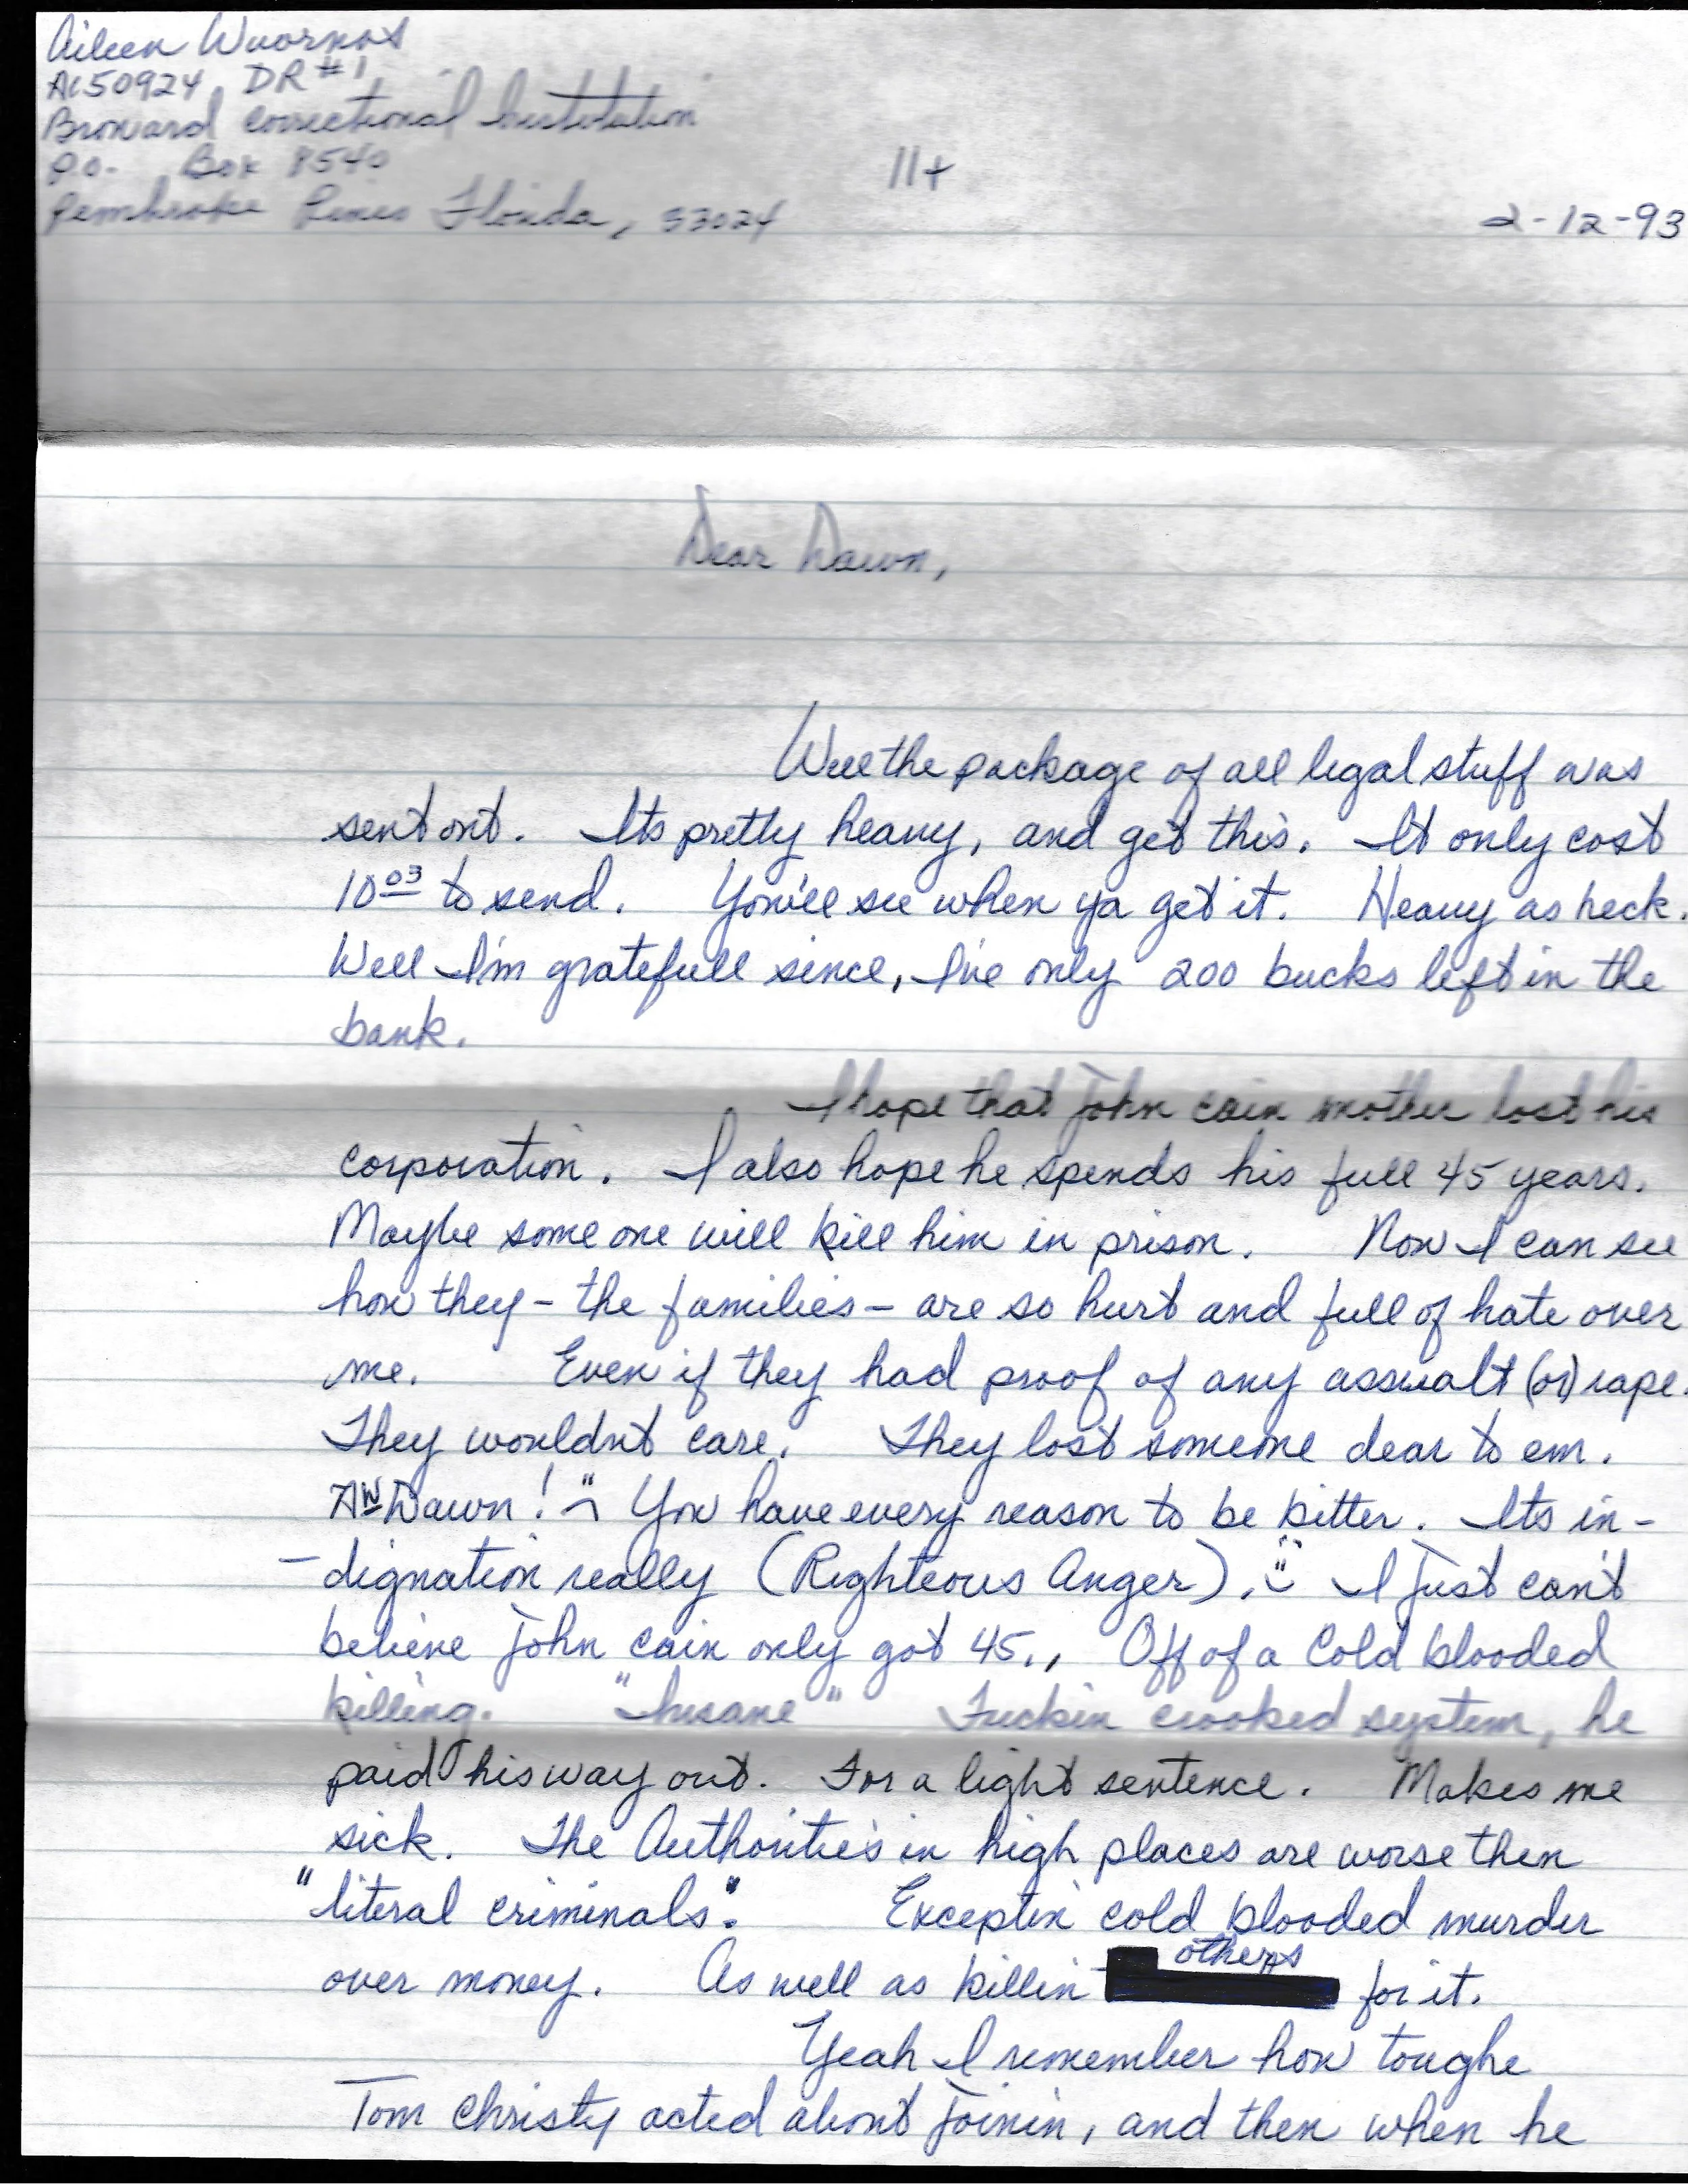 Aileen Wuornos
A150924 DR#1
Broward Correctional Institution
P.O. Box 8540
Pembroke Pines Florida, 33024
11+
2-12-93
Dear Dawn,
Well the package of all legal stuff was
sent out. Its pretty heavy, and get this. It only cost
10 03 to send. You'll see when ya get it. Heavy as heck.
Well I'm gratefull since, I've only 200 bucks left in the
bank.
I hope that John Cain mother lost his
corporation. I also hope he spends his full 45 years.
Maybe some one will kill him in prison. Now I can see
how they - the families - are so hurt and full of hate over
me. Even if they had proof of any asswalt (or) rape.
They wouldnt care. They lost someone dear to em.
Aw Dawn! You have every reason to be bitter. Its in-
-dignation really (Righteous Anger). I just can't
believe John Cain only got 45., Off of a Cold blooded
killing. "Insane" Fuckin crooked system, he
paid his way out. For a light sentence. Makes me
sick. The Authoritie's in high places are worse then
"literal criminals". Exceptin cold blooded murder
over money. As well as killin others for it.
Yeah I remember how toughe
Tom Christy acted about joinin, and then when he